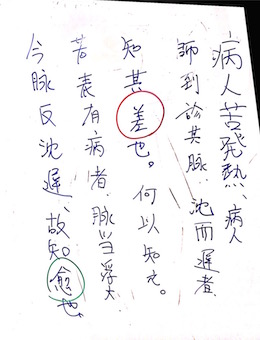 病人苦発熱、病人
師到診其脉、沈而遅者、
知其差也。何以知之。
若表有病者、脉当浮大、
今脉反沈遅、故知愈也、